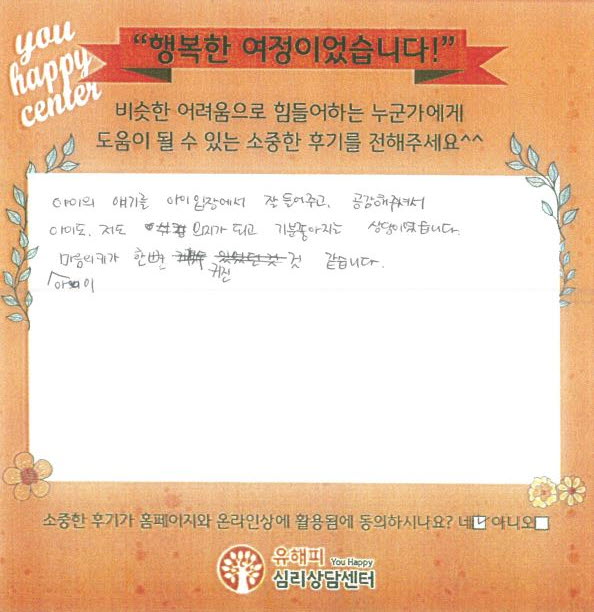 you
happy
center
“행복한 여정이었습니다!”
비슷한 어려움으로 힘들어하는 누군가에게
도움이 될 수 있는 소중한 후기를 전해주세요^^
아이의 얘기를 아이 입장에서 잘 들어주고, 공감해주셔서
아이도, 저도 의지가 되고 기분좋아지는 상담이었습니다.
마음의키가 한뼘 커진 것 같습니다.
아이
소중한 후기가 홈페이지와 온라인상에 활용됨에 동의하시나요? 네 아니오
유해피 You Happy
심리상담센터